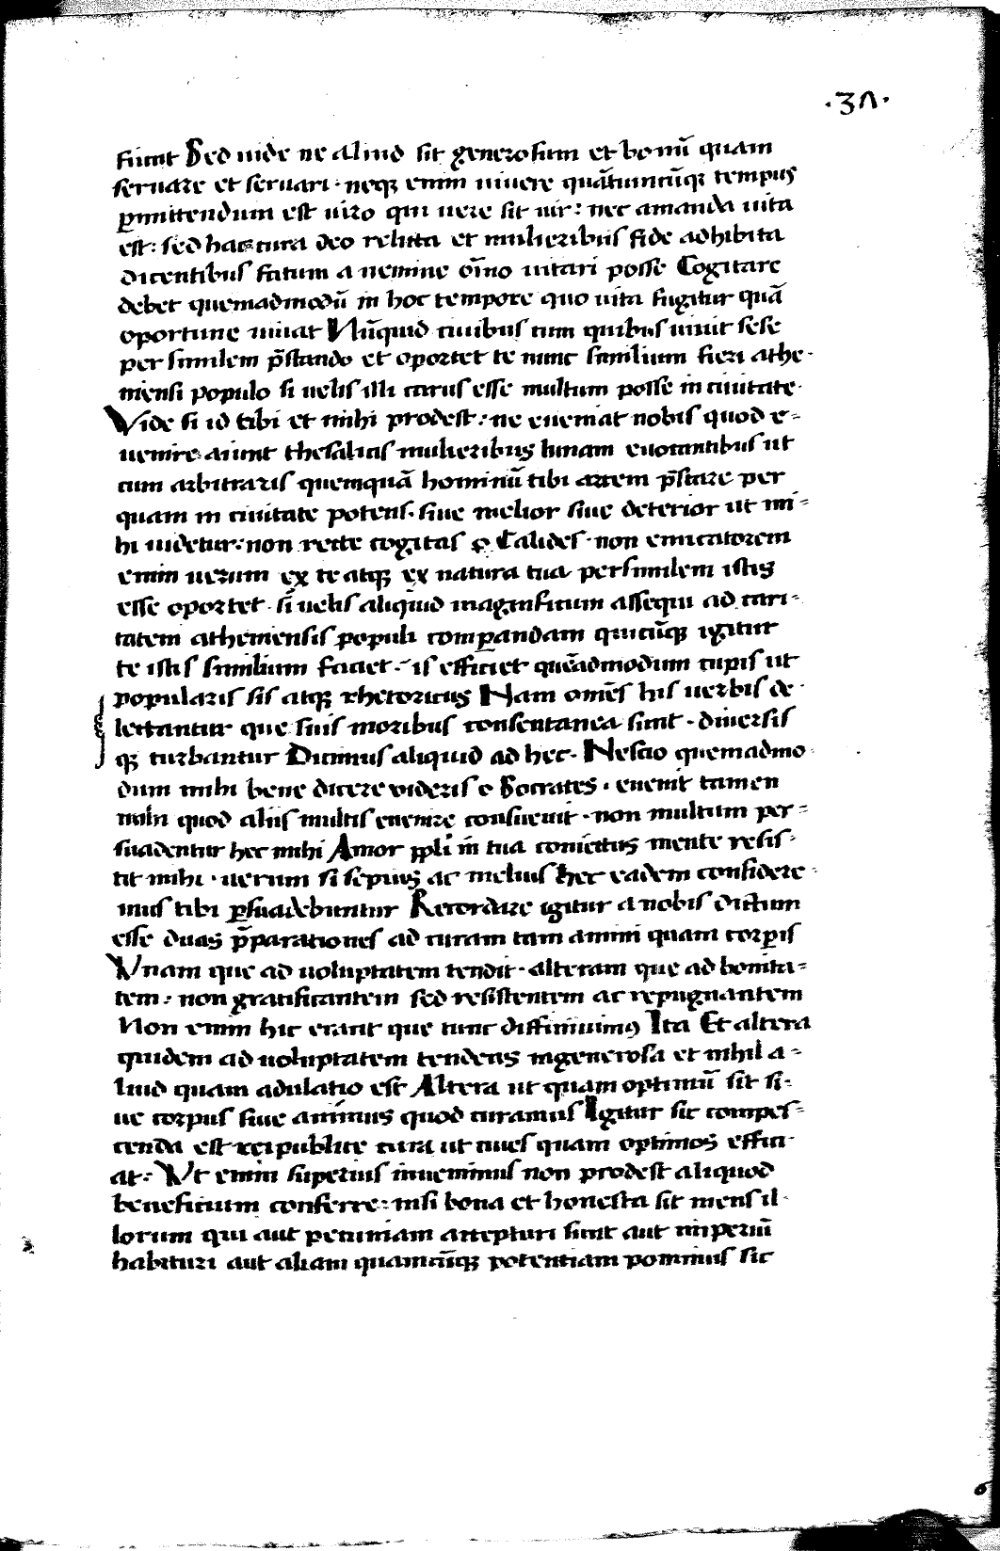 ·37·
fiunt Sed uide ne aliud sit generosum et bonū quam
seruare et seruari· neqꝫ enim uiuere quātuncūqꝫ tempus
ꝑmittendum est uiro qui uere sit uir: nec amanda uita
est: sed hac cura deo relicta et mulieribus fide adhibita
dicentibus fatum a nemine oīno uitari posse Cogitare
debet quemadmodū in hoc tempore quo uita fugitur quā
oportune uiuat Nūquid ciuibus cum quibus uiuit sese
per similem p̄stando et oportet te nunc similium fieri athe·
niensi populo si uelis illi carus esse multum posse in ciuitate·
Vide si id tibi et mihi prodest: ne eueniat nobis quod e-
uenire aiunt thesalias mulieribus lunam euocantibus ut
cum arbitraris quemquā hominū tibi artem p̄stare per
quam in ciuitate potens· siue melior siue deterior ut mi-
hi uidetur: non recte cogitas o Calides· non emicatorem
enim uerum ex te atqꝫ ex natura tua persimilem istis
esse oportet· si uelis aliquid magnificum assequi ad cari-
tatem atheniensis populi comparandam quicūqꝫ igitur
te istis similium faciet· is efficiet quēadmodum cupis ut
popularis sis atqꝫ rhetoricus Nam omēs his uerbis de·
lectantur que suis moribus consentanea sunt· diuersis
qꝫ turbantur Dicimus aliquid ad hec· Nescio quemadmo
dum mihi bene dicere uideris o Socrates· euenit tamen
mihi quod aliis multis euenire consueuit· non multum per-
suadentur hec mihi Amor ppli in tua coniectus mente resis-
tit mihi· uerum si sepius ac melius hec eadem considere·
mus tibi ꝑsuadebuntur Recordare igitur a nobis dictum
esse duas p̄parationes ad curam tam animi quam corpis
Vnam que ad uoluptatem tendit· alteram que ad bonita-
tem: non gratificantem sed resistentem ac repugnantem
Non enim hic erant que tunc diffiniuimꝰ Ita Et altera
quidem ad uoluptatem tendens ingenerosa et nihil a-
liud quam adulatio est Altera ut quam optimū sit si-
ue corpus siue animus quod curamus Igitur sic compes-
cenda est reipublice cura ut ciues quam optimos effici·
at: Vt enim superius inuenimus non prodest aliquod
beneficium conferre: nisi bona et honesta sit mens il·
lorum qui aut pecuniam accepturi sunt aut imperiū
habituri aut aliam quamcūqꝫ potentiam ponimus sic